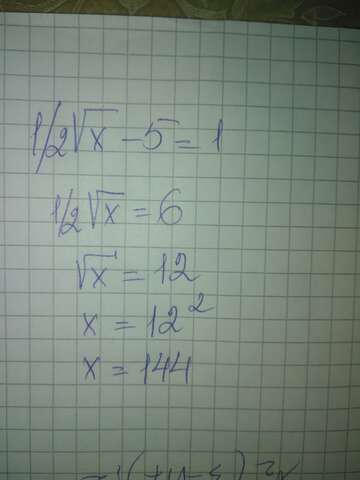 1/2√x - 5 = 1
1/2√x = 6
√x = 12
x = 12²
x = 144